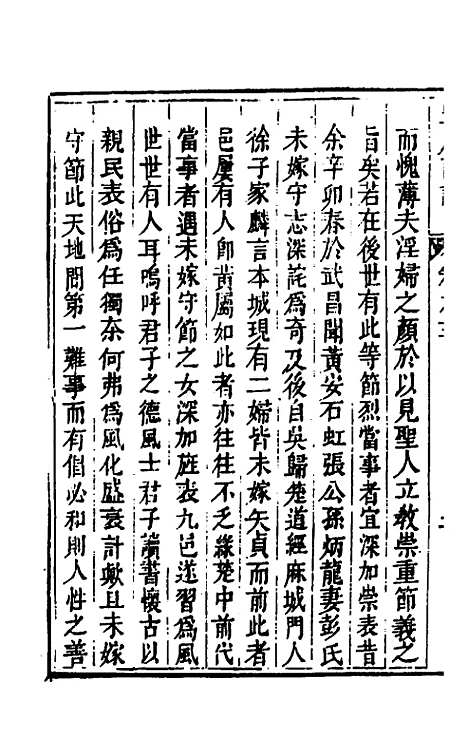 而愧薄夫淫婦之顏於以見聖人立教崇重節義之
旨矣若在後世有此等節烈當事者宜深加崇表昔
余辛卯春於武昌聞黃安石虹張公孫炳龍妻彭氏
未嫁守志深詫爲奇及後自吳歸楚道經麻城門人
徐子家麟言本城現有二婦皆未嫁矢貞而前此者
邑屢有人卽黃屬如此者亦往往不乏緣楚中前代
當事者遇未嫁守節之女深加旌表九邑遂習爲風
世世有人耳嗚呼君子之德風士君子讀書懷古以
親民表俗爲任獨柰何弗爲風化盛衰計歟且未嫁
守節此天地間第一難事而有倡必和則人性之善